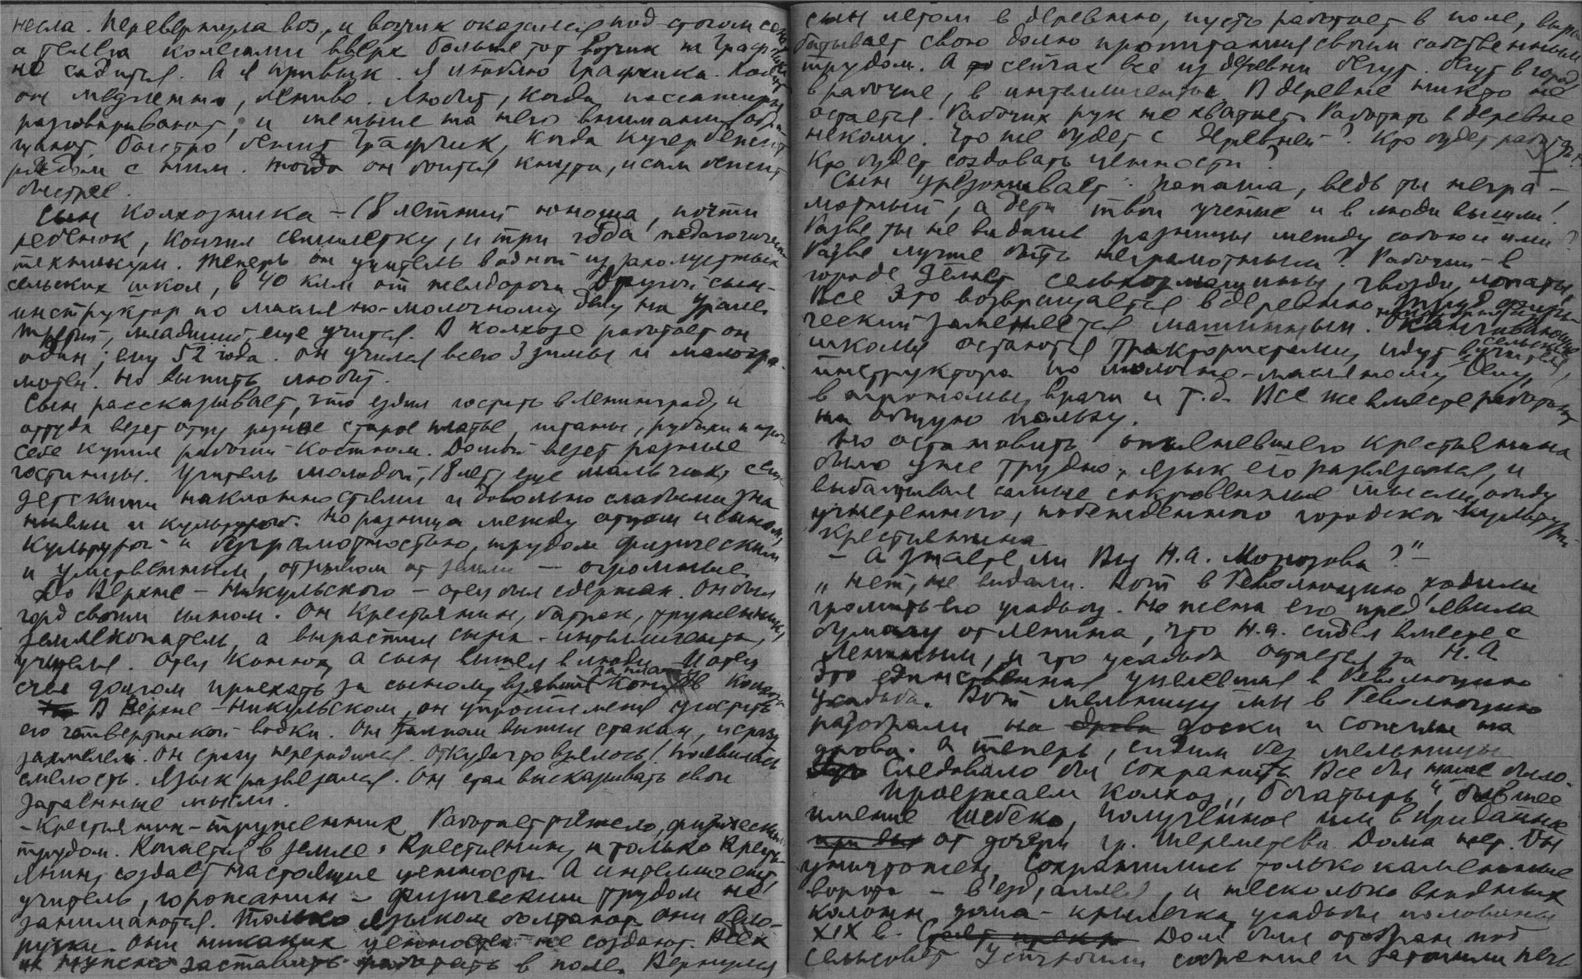 несла. Перевернула воз, и возчик оказался под стогом сена
а телега колесами вверх. Больше тот возчик на Графчика
не садится. А я привык. Я люблю Графчика.
он медленно, лениво. Любит, когда пассажиры
разговаривают, и меньше на него внимания обра-
щают. Быстро бежит Графчик, когда кучер бежит
рядом с ним. Тогда он боится кнута, и сам бежит
быстрее.
Сын колхозника – 18 летний юноша, почти
ребенок, кончил семилетку, и три года педагогический
техникум. Теперь он учитель в одной из захолустных
сельских школ, в 40 клм от жел дороги. Другой сын –
инструктор по маслено-молочному делу на Урале.
Третий, младший еще учится. В колхозе работает он
один; ему 52 года. Он учился всего 3 зимы и малогра-
мотен. Но выпить любит.
Сын рассказывает, что ездил гостить в Ленинград и
оттуда везет отцу разное старое платье, штаны, рубахи и проч
себе купил рабочий костюм. Домой везет разные
гостинцы. Учитель молодой, 18 лет, еще мальчик, с
детскими наклонностями и довольно слабыми зна-
ниями и культурой. Но разница между отцом и сыном,
культурой и безграмотностью, трудом физическим
и умственным, отрывом от земли — огромные.
До Верхне-Никульского – отец был сдержан. Он был
горд своим сыном. Он крестьянин, батрак, труженник,
землекопатель, а вырастил сына – интеллигента,
учителя. Отец конюх, а сын вышел в люди. И отец
счел долгом приехать за сыном, взявши коня
В Верхне-Никульском, он упросил меня угостить
его четвертинкой водки. Он залпом выпил стакан, и сразу
захмелел. Он сразу переродился. Откуда что взялось! Появилась
смелость. Язык развязался. Он стал высказывать свои
затаенные мысли.
– Крестьянин – труженник. Работает тяжело, физическим
трудом. Копается в земле. Крестьянин, и только кресть-
янин, создает настоящие ценности. А интеллигент,
учитель, горожанин – физическим трудом не
занимаются. Только языком болтают. Они бело-
ручки. Они никаких ценностей не создают. Всех
их нужно заставить работать в поле. Вернулся
сын летом в деревню, пусть работает в поле, выра-
батывает свою долю пропитания своим собственным
трудом. А сейчас все из деревни бегут. Бегут в город
в рабочие, в интеллигенты. В деревне никто не
остается. Рабочих рук не хватает. Работать в деревне
некому. Что же будет с деревней? Кто будет работать?
Кто будет создавать ценности?
Сын урезонивает: Папаша, ведь ты негра-
мотный, а дети твои ученые и в люди вышли!
Разве ты не видишь разницы между собою и ими?
Разве лучше быть неграмотным? Рабочий в
городе делает сельхозмашины, гвозди, лопаты.
Все это возвращается в деревню. Труд физи-
ческий заменяется машинным. Оканчивающие
школы остаются трактористами, идут в сельские учителя,
инструктора по молочно-масляному делу,
в агрономы, врачи и т.д. Все же вместе работают
на общую пользу.
Но остановить опьяневшего крестьянина
было уже трудно. Язык его развязался, и
выбалтывал самые сокровенные мысли, обиду
угнетенного, побежденного городской культурой
крестьянина.
– А знаете ли Вы Н.А. Морозова?" –
„Нет, не видали. Вот в Революцию ходили
громить его усадьбу. Но жена его предъявила
бумагу от Ленина, что Н.А. сидел вместе с
Лениным, и что усадьба остается за Н.А
Это единственная уцелевшая в Революцию
усадьба. Вот мельницу мы в Революцию
разобрали на доски и сожгли на
дрова. А теперь, сидим без мельницы
Следовало бы сохранить. Все бы наше было.
Проезжаем колхоз „Богатырь", бывшее
имение Шебеко, полученное им в приданое
от дочери гр. Шереметева. Дома нет. Он
уничтожен. Сохранились только каменные
ворота – въезд, аллея, и несколько
колонн дома – крылечка усадьбы половины
XIX в. Дом был отобран под
сельсовет.